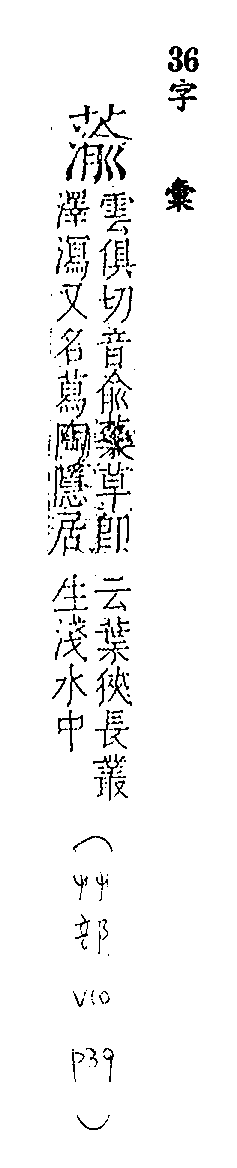 36字彙
蕍
雲俱切音兪藥草即
澤瀉又名蕮陶隱居
云葉狹長叢
生淺水中
（艸部 V10 P39）